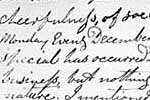 cheerfulness, of soc
Monday Eveng December
special has occured
business, but nothing
nature. I mentioned